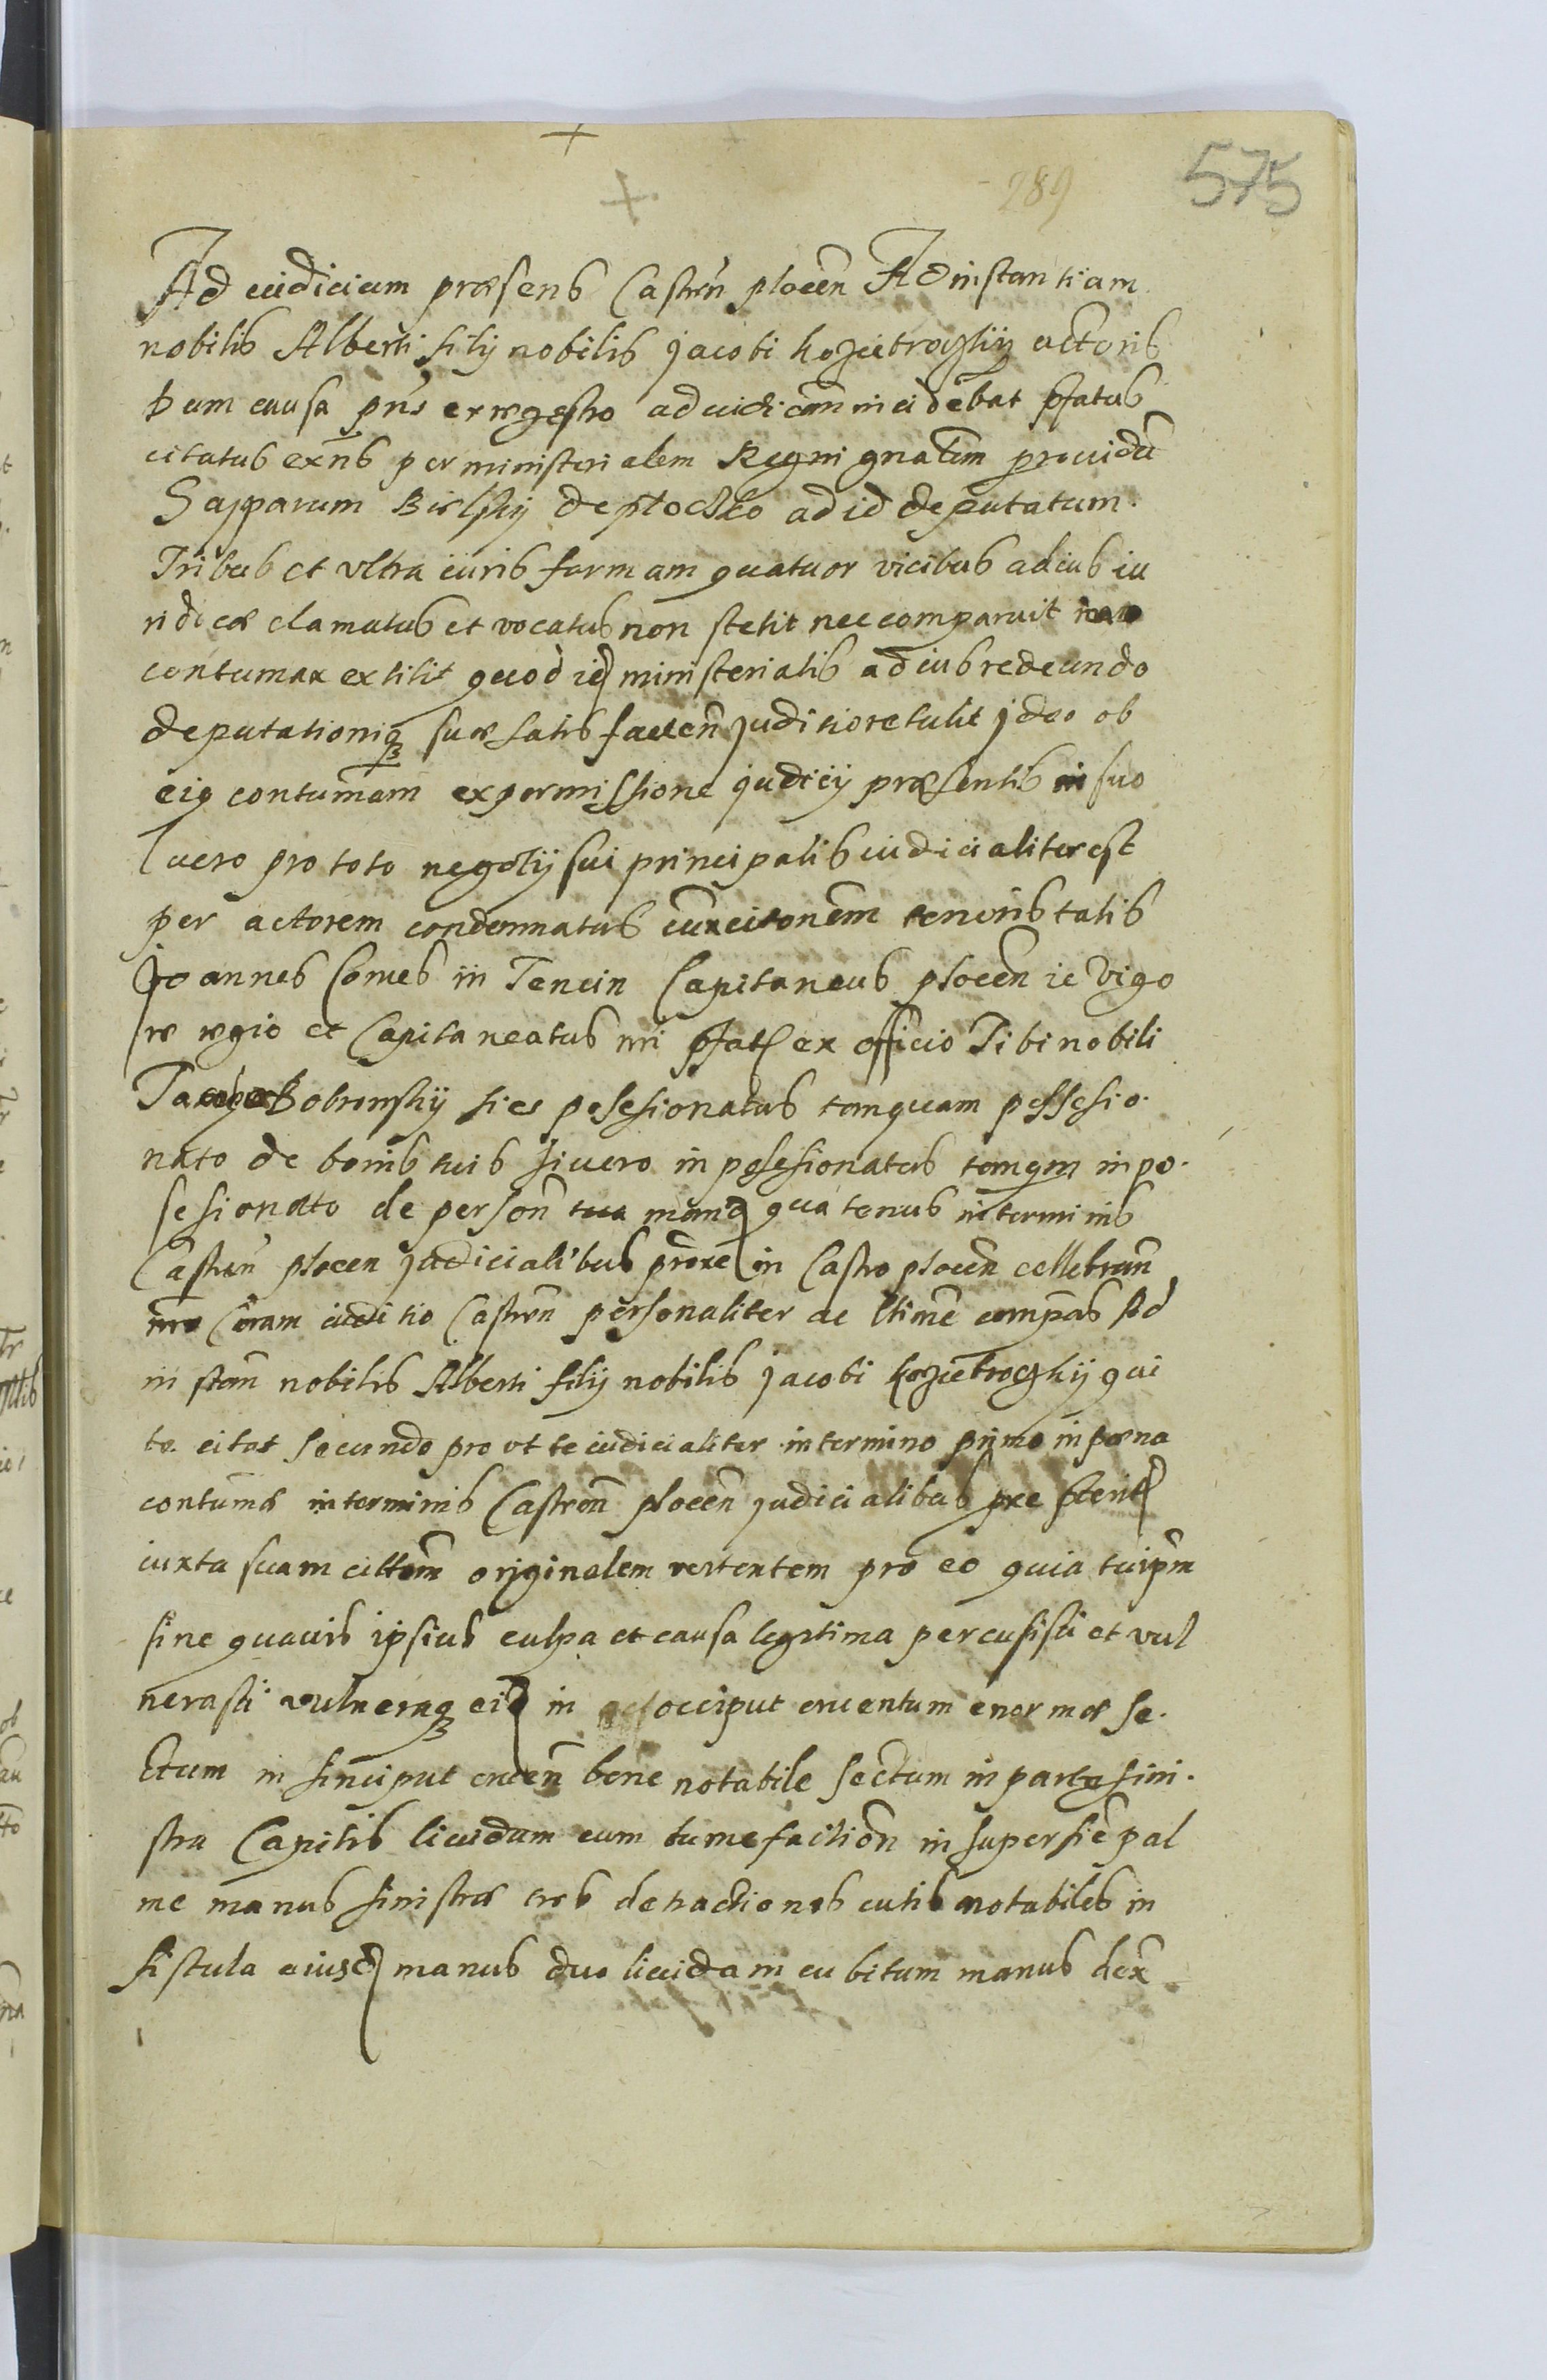 289
575
Ad iudicium præsens Castrn plocen Ad instantiam
nobilis Alberti filij nobilis Jacobi kozietroczkij actoris
Dum causa pns ex regestro ad iudicam incidebat pfatus
citatus exns per ministerialem Regni gnalem prouidu
Gasparum Bielskij de plocsko ad id deputatum.
Tribus et vltra iuris formam quatuor vicibus ad ius iu
ridicæ clamatus et vocatus non stetit nec comparuit
contumax extitit quod id ministerialis ad ius redeundo
deputationiq suæ satis facien juditio retulit jdeo ob
eig contumam ex permissione judicij præsentis in suo
lucro pro toto negotij sui principalis iudicialiter est
per actorem condemnatus iux citonem tenoris talis
Joannes Comes in Tencin Capitaneus plocen ic Vigo
re regio et Capitaneatus nri pfat ex officio Tibi nobili
Bobrowskij si es posesionatus tanquam possesio.
nato de bonis tuis si uero in posesionatus tanqm inpo.
sesionato de person tua mand quatenus in terminis
Castren plocen judicialibus prõxe in Castro plocen cellebran
Coram iuditio Castren personaliter ac ltime compas Ad
in stan nobilis Alberti filij nobilis jacobi kozietroczkij qui
te citat secundo pro vt te iudicialiter in termino primo in pœna
contumæ in terminis Castren plocen judicialibus pxe
iuxta suam cittom originalem vertentem pro eo quia tu ipm
sine quauis ipsius culpa et causa legitima percusisti et vul
nerasti vulneraq eid in occiput cruentum enormæ se.
ctum in sinciput cruen bene notabile sectum in parte sini.
stra Capitis liuidum cum tumefaction in superfie pal
me manus sinistræ tres detractiones cutis notabiles in
fistula eiusd manus duo liuida in cubitum manus dex